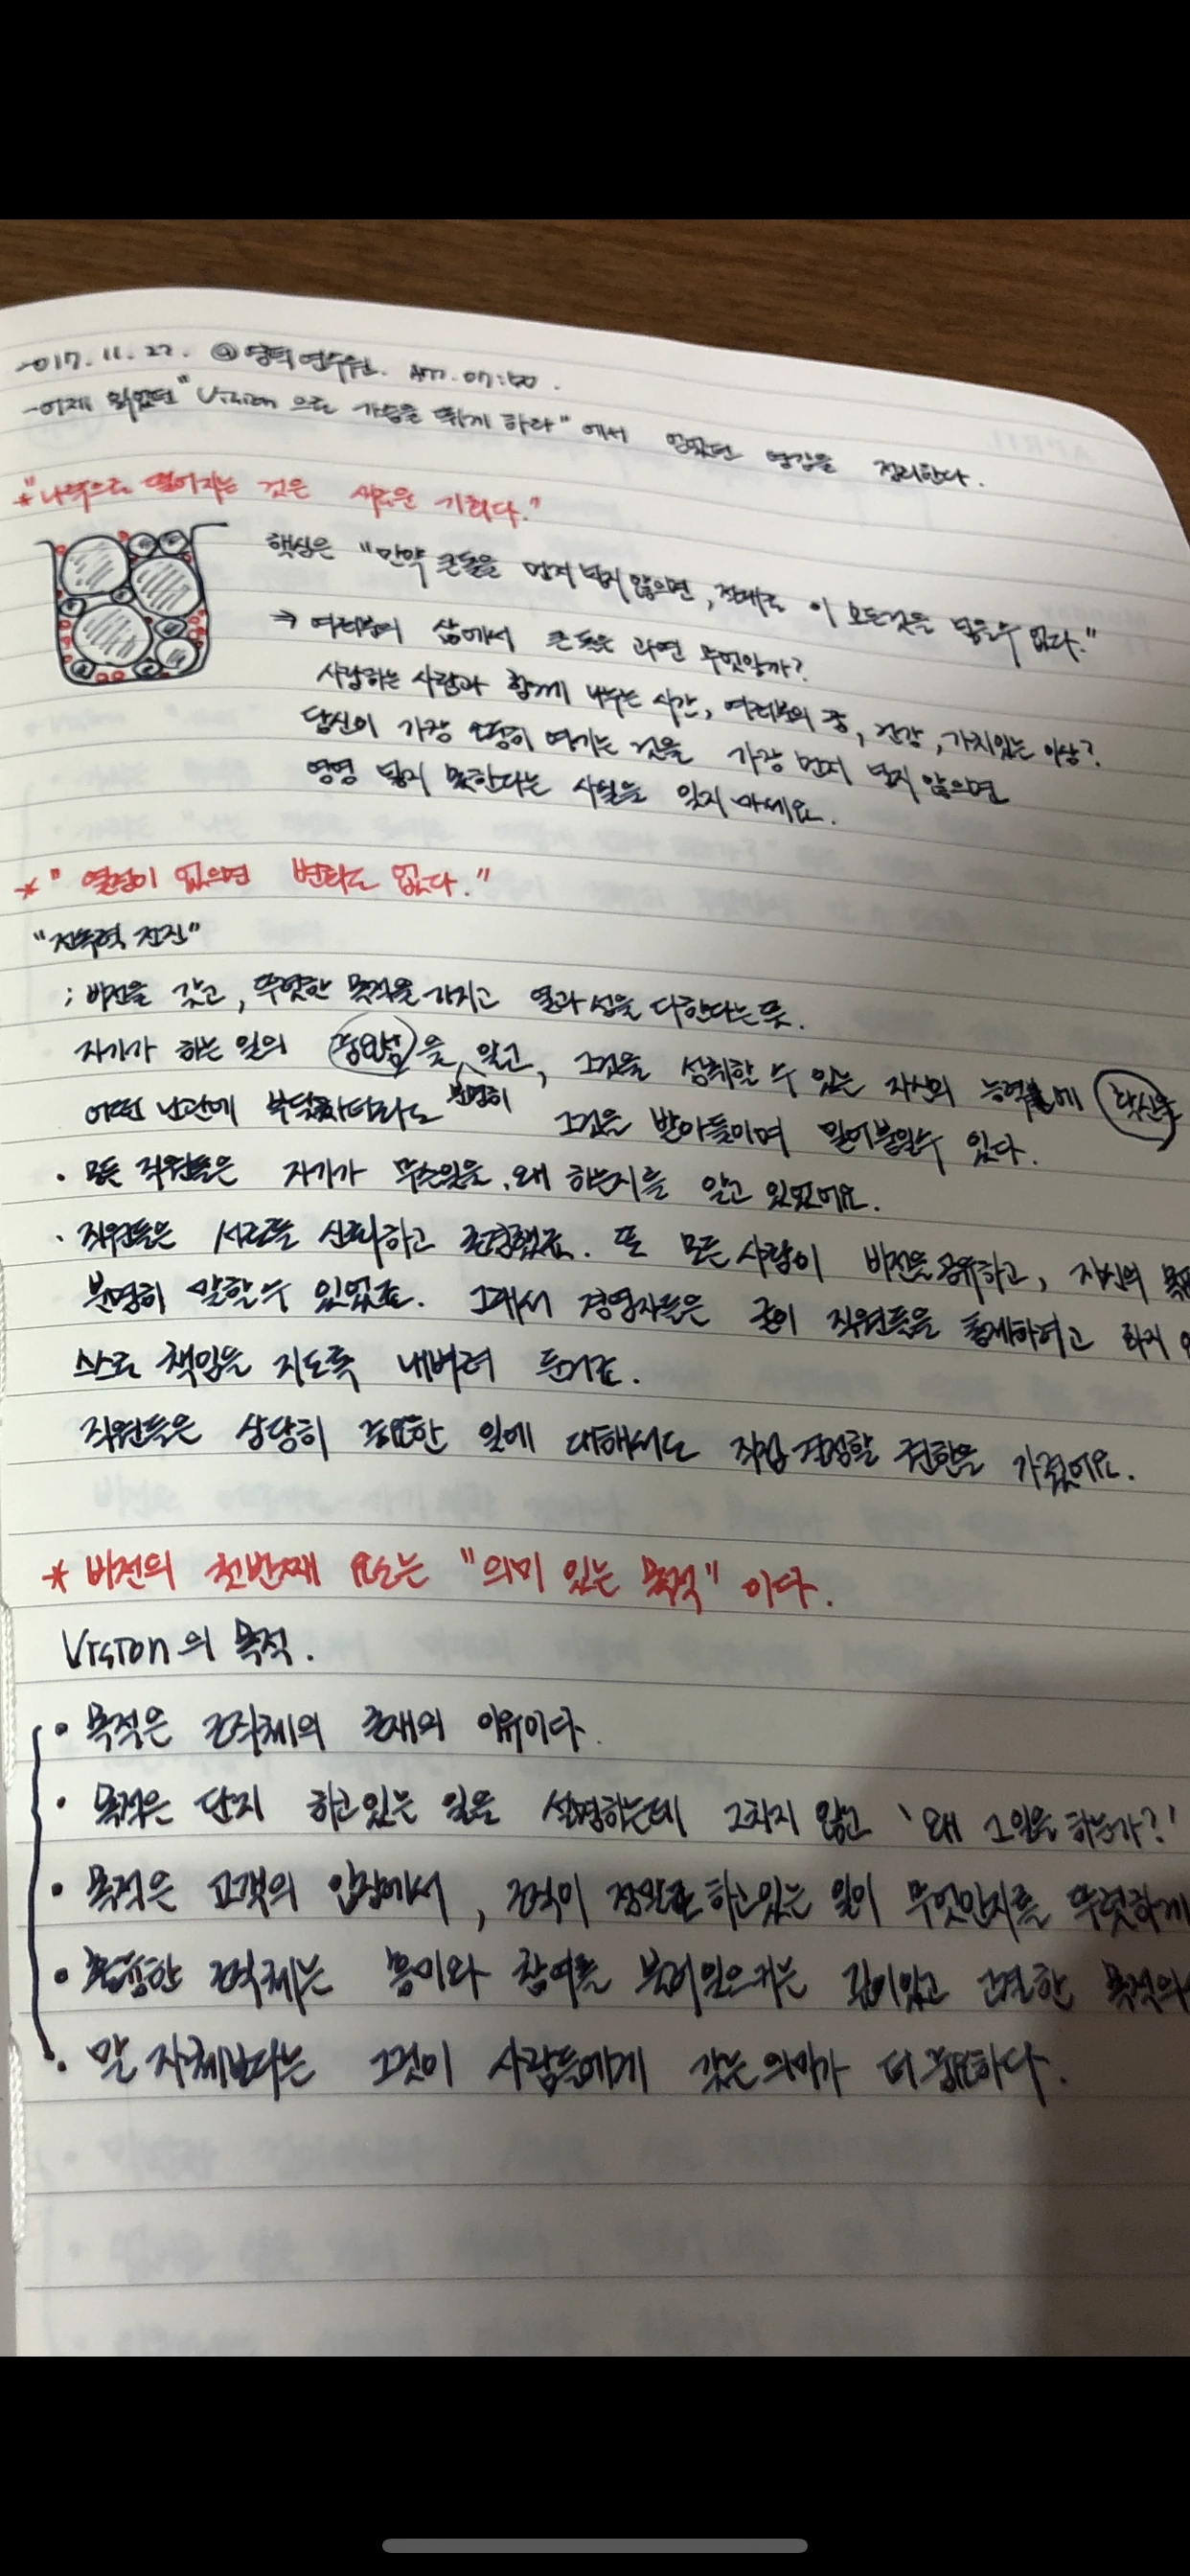 017.11.22. @영덕연수원. Am.07:50.
어제 읽었던 "Vision으로 가슴을 뛰게 하라"에서 얻었던 영감을 정리한다.
*"나락으로 떨어지는 것은 새로운 기회다."
핵심은 "만약 큰돌을 먼저 넣지 않으면, 절대로 이 모든것을 넣을수 없다."
→ 여러분의 삶에서 큰 돌은 과연 무엇일까?
사랑하는 사람과 함께 나누는 시간, 여러분의 꿈, 건강, 가치있는 이상?
당신이 가장 소중히 여기는 것을 가장 먼저 넣지 않으면
영영 넣지 못한다는 사실을 잊지 마세요.
* "열정이 없으면 변화도 없다."
"전속력 전진"
; 비전을 갖고, 뚜렷한 목적을 가지고 열과 성을 다한다는 뜻.
자기가 하는 일의 중요성을 알고, 그것을 성취할 수 있는 자신의 능력에 확신을
분명히
어떤 난관에 부딪히더라도 그것을 받아들이며 밀어붙일수 있다.
· 모든 직원들은 자기가 무슨일을, 왜 하는지를 알고 있었어요.
· 직원들은 서로를 신뢰하고 존경했죠. 또 모든 사람이 비전을 공유하고, 자신의 목표
분명히 말할수 있었죠. 그래서 경영자들은 굳이 직원들을 통제하려고 하지
스스로 책임을 지도록 내버려 둔거죠.
직원들은 상당히 중요한 일에 대해서도 직접 결정할 권한을 가졌어요.
* 비전의 첫번째 요소는 "의미 있는 목적"이다.
Vision의 목적.
· 목적은 조직체의 존재의 이유이다.
· 목적은 단지 하고있는 일을 설명하는데 그치지 않고 '왜 그일을 하는가?'
· 목적은 고객의 입장에서, 조직이 정말로 하고있는 일이 무엇인지를 뚜렷하게
· 훌륭한 조직체는 흥미와 참여를 불러일으키는 깊이있고 고결한 목적의
· 말 자체보다는 그것이 사람들에게 갖는 의미가 더 중요하다.